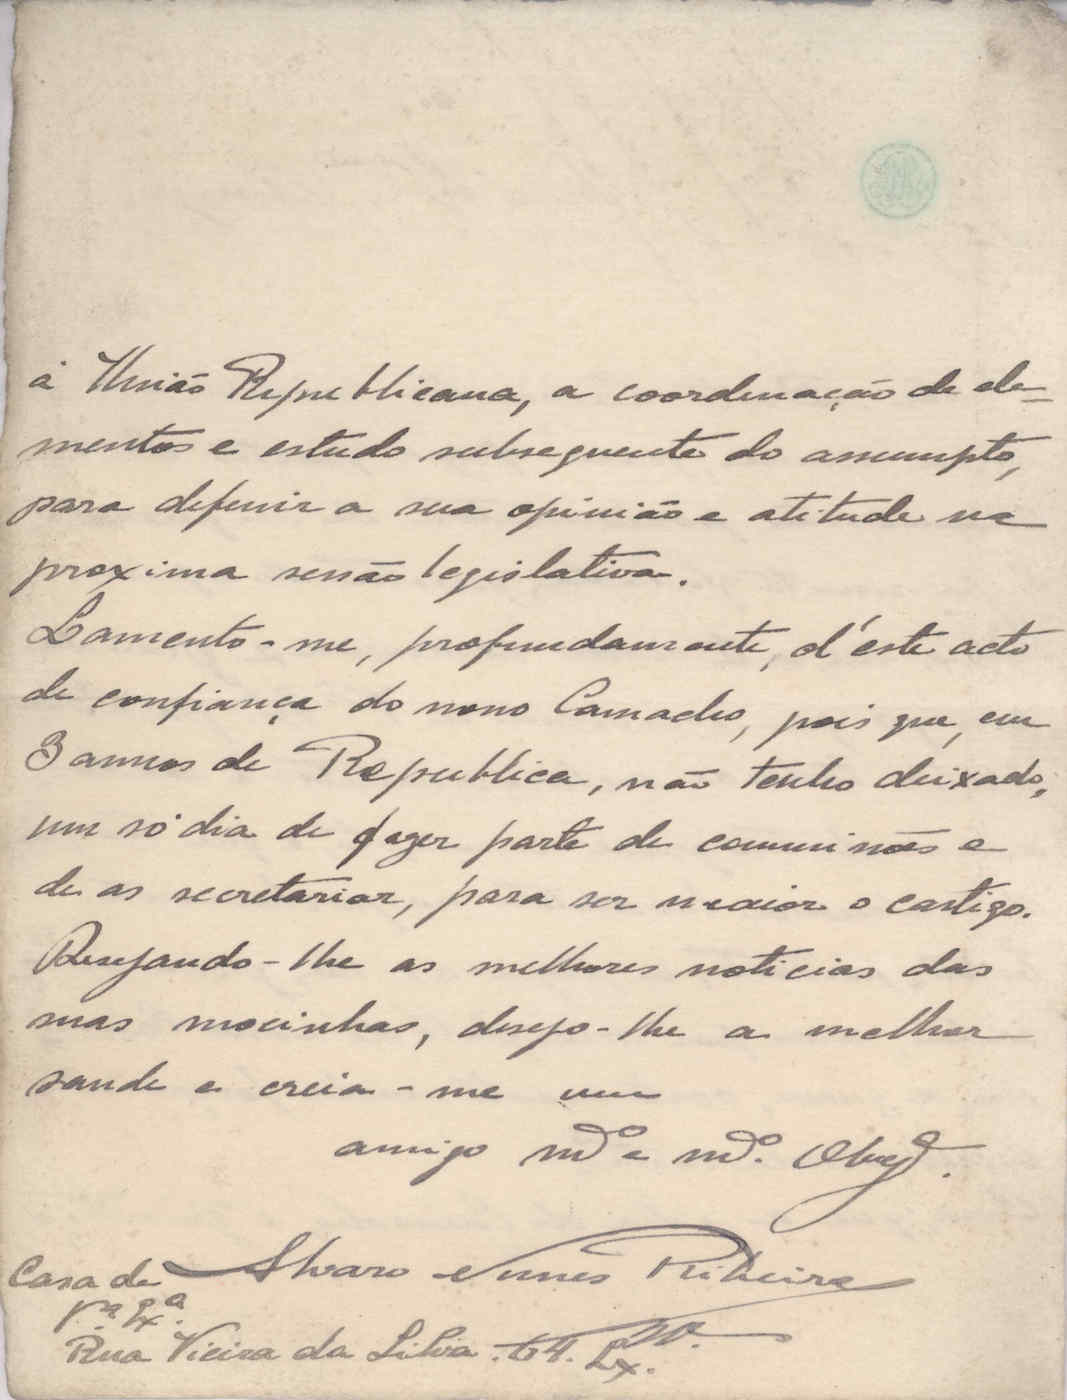 á União Republicana, a coordenação de ele-
mentos e estudo subsequente do assumpto,
para defenir a sua opinião e atitude na
proxima sessão legislativa.
Lamento-me, profundamente, d'este acto
de confiança do nosso Camacho, pois que, em
3 annos de Republica, não tenho deixado,
um só dia de fazer parte de commissões e
de as secretariar, para ser maior o castigo.
Desejando-lhe as melhores noticias das
suas mocinhas, desejo-lhe a melhor
saude e creia-me um
amigo mdo e mdo. Obrgdo.
Alvaro Nunes Ribeiro
Casa de
V.ª Ex.ª
Rua Vieira da Silva. 64. Lx.